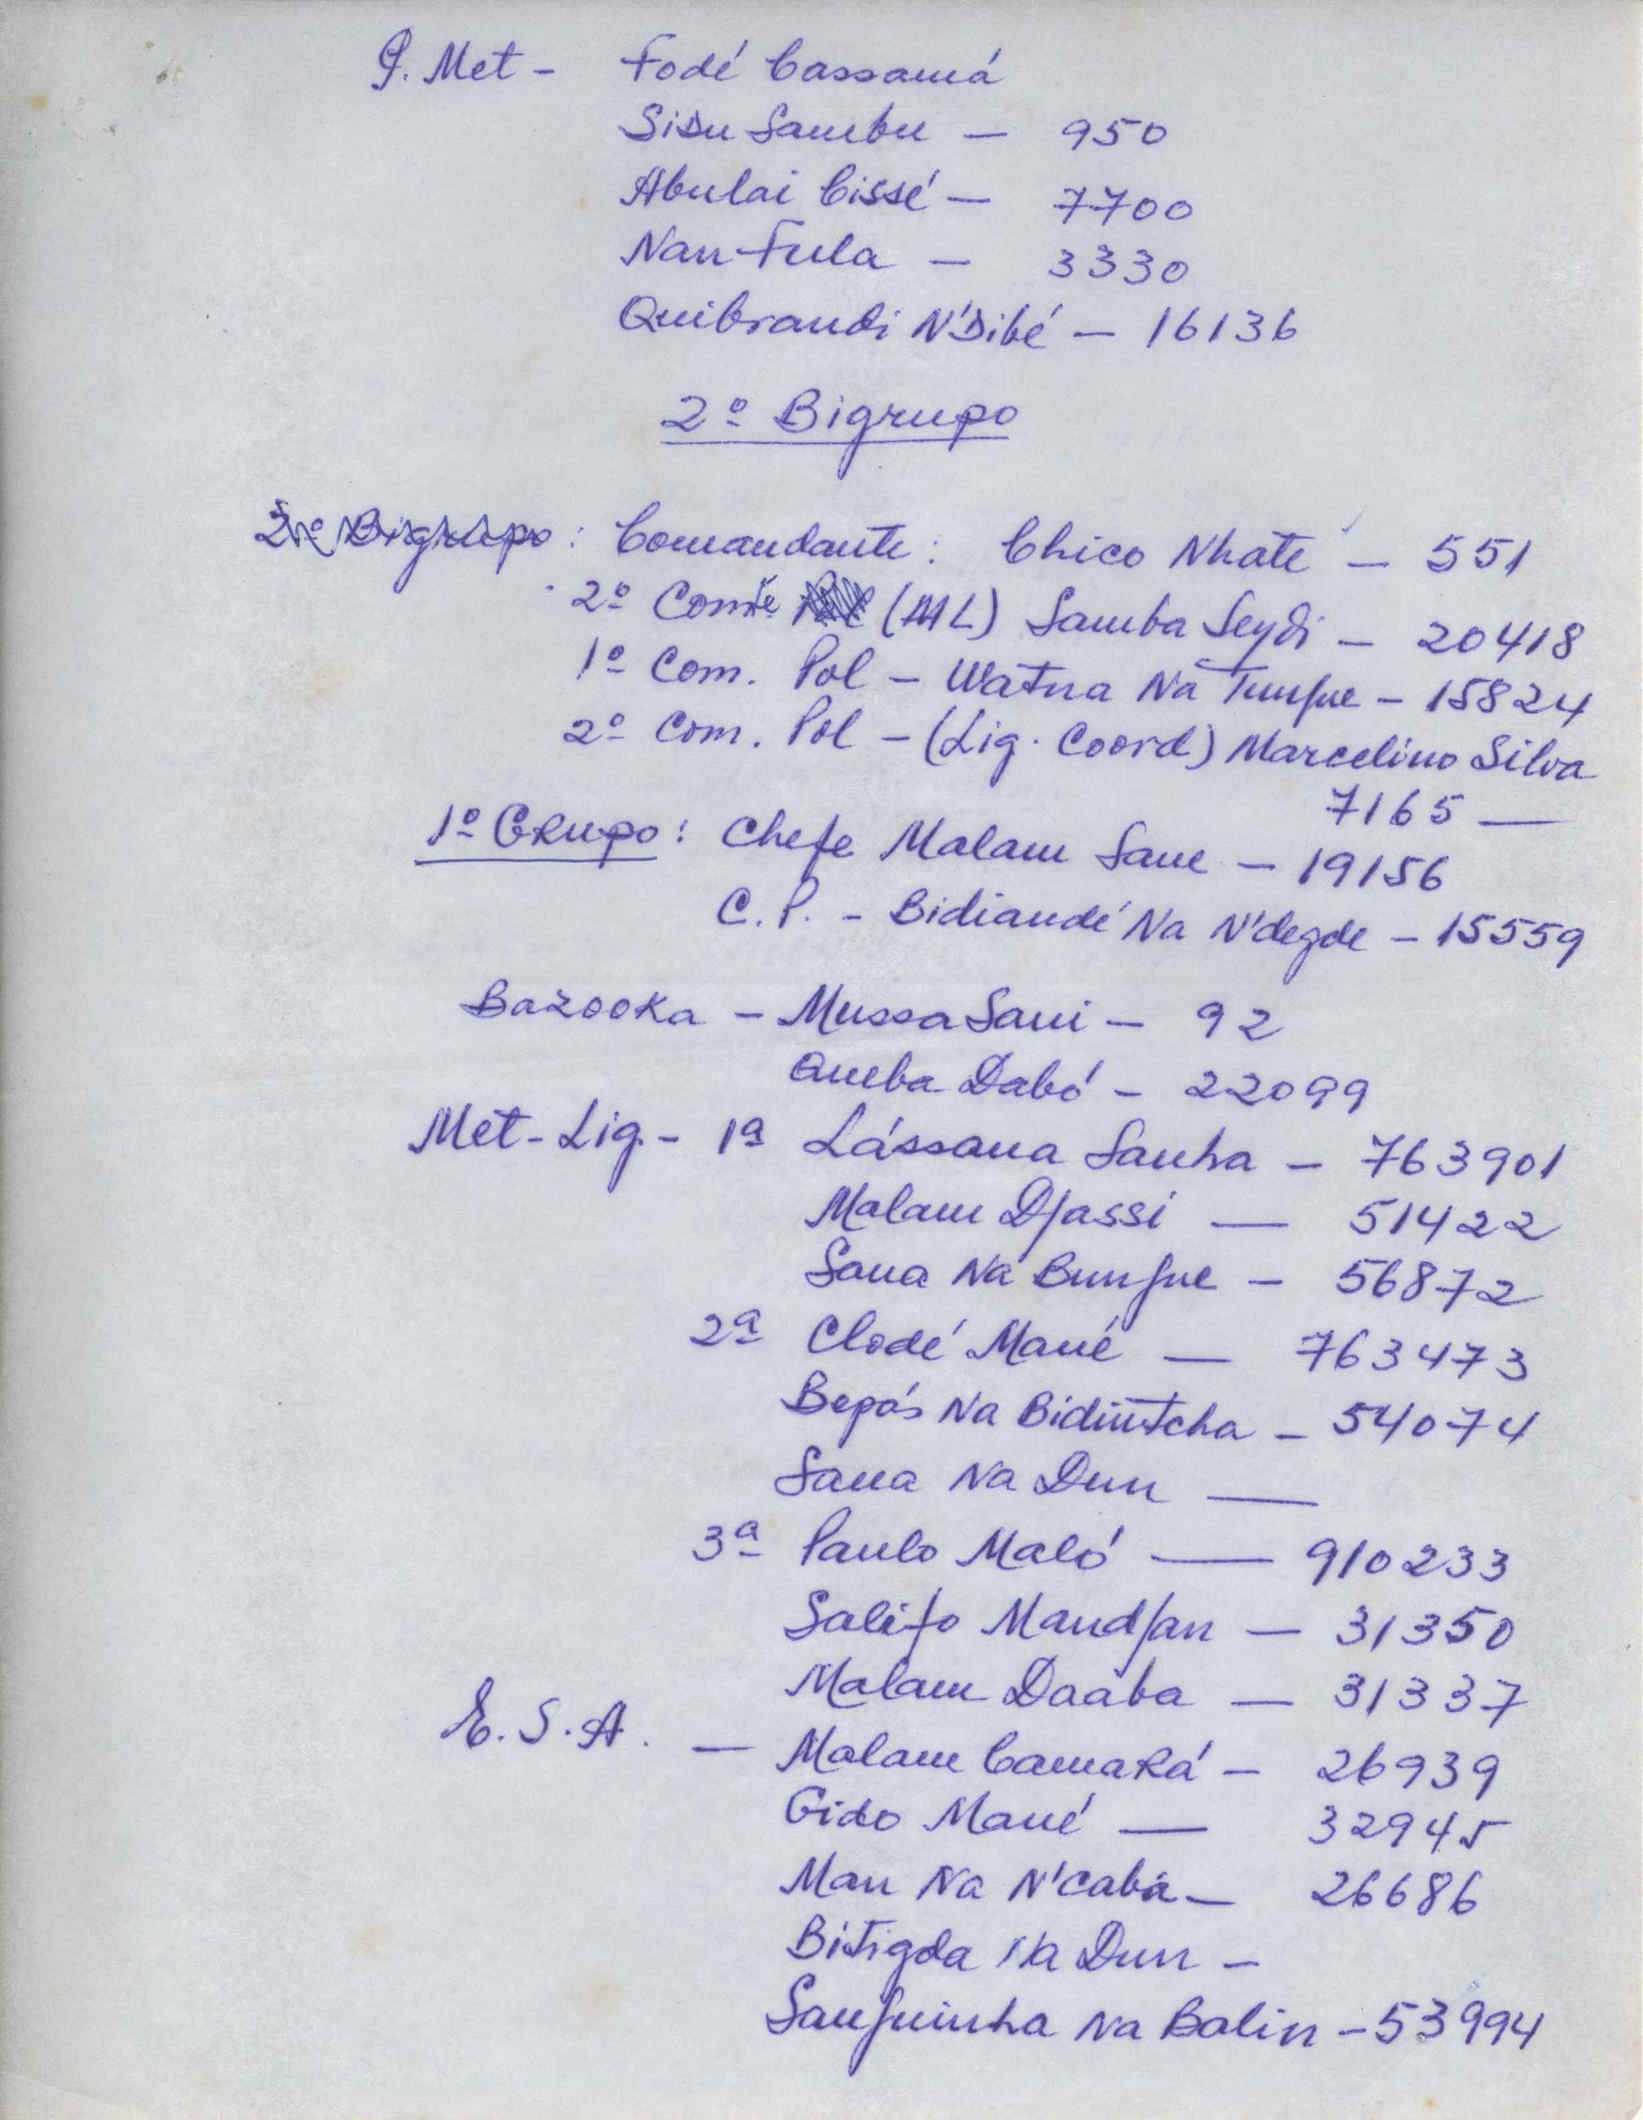 P. Met - Fodé Cassamá
Sidu Sambu - 950
Abulai Cissé - 7700
Nan Fula - 3330
Quibrandi N'Dibé - 16136
2º Bigrupo
2º Bigrupo : Comandante : Chico Nhate - 551
2º Comte (ML) Samba Seydi - 20418
1º Com. Pol - Watna Na Tungue - 15824
2º Com. Pol - (Lig. Coord) Marcelino Silva
7165 —
1º Grupo : Chefe Malam Sane - 19156
C. P. - Bidiandé Na N'degde - 15559
Bazooka - Mussa Sani - 92
Queba Dabó - 22099
Met - Lig. - 1ª Lássana Sanha - 763901
Malam Djassi — 51422
Sana Na Bungue - 56872
2ª Clodé Mané — 763473
Bepós Na Bidintcha - 54074
Sana Na Dun —
3ª Paulo Maló — 910233
Salifo Mandjan - 31350
Malam Daaba - 31337
E. S. A. - Malam Camará - 26939
Gido Mané — 32945
Man Na N'Caba - 26686
Bitigda Na Dun -
Sanguinha Na Balin - 53994